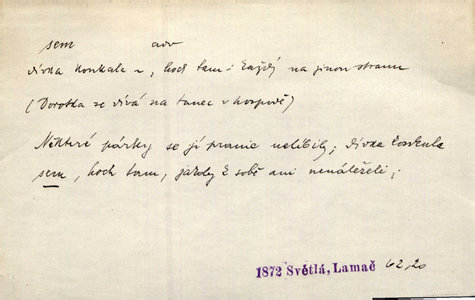 sem adv
dívka koukala ~, hoch tam - každý na jinou stranu
(Dorotka se dívá na tanec v hospodě)
Některé párky se jí pranic nelíbily; dívka koukala
sem, hoch tam, jakoby k sobě ani nenáleželi;
1872 Světlá, Lamač 62,20